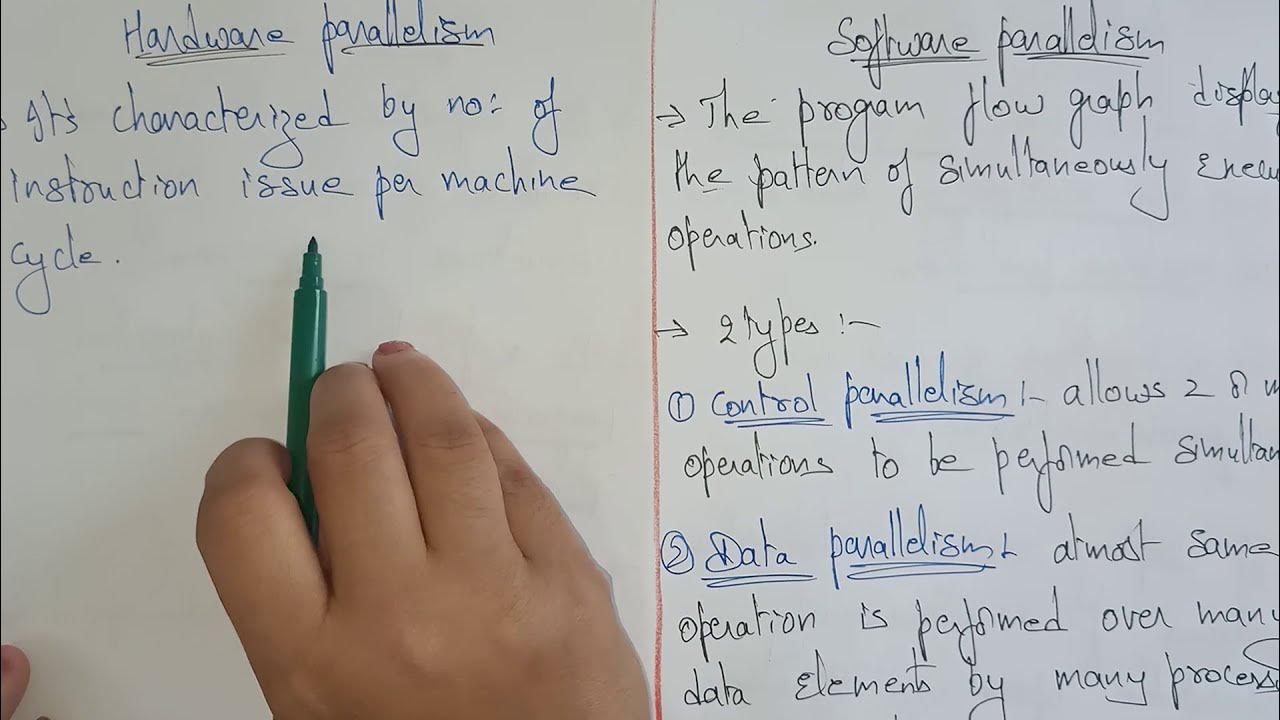 Hardware parallelism
It's characterized by no: of
instruction issue per machine
cycle.
Software parallelism
→ The program flow graph display
the pattern of simultaneously
operations.
→ 2 types :-
① Control parallelism :- allows 2 or
operations to be performed
② Data parallelism :- atmost same
operation is performed over many
data elements by many